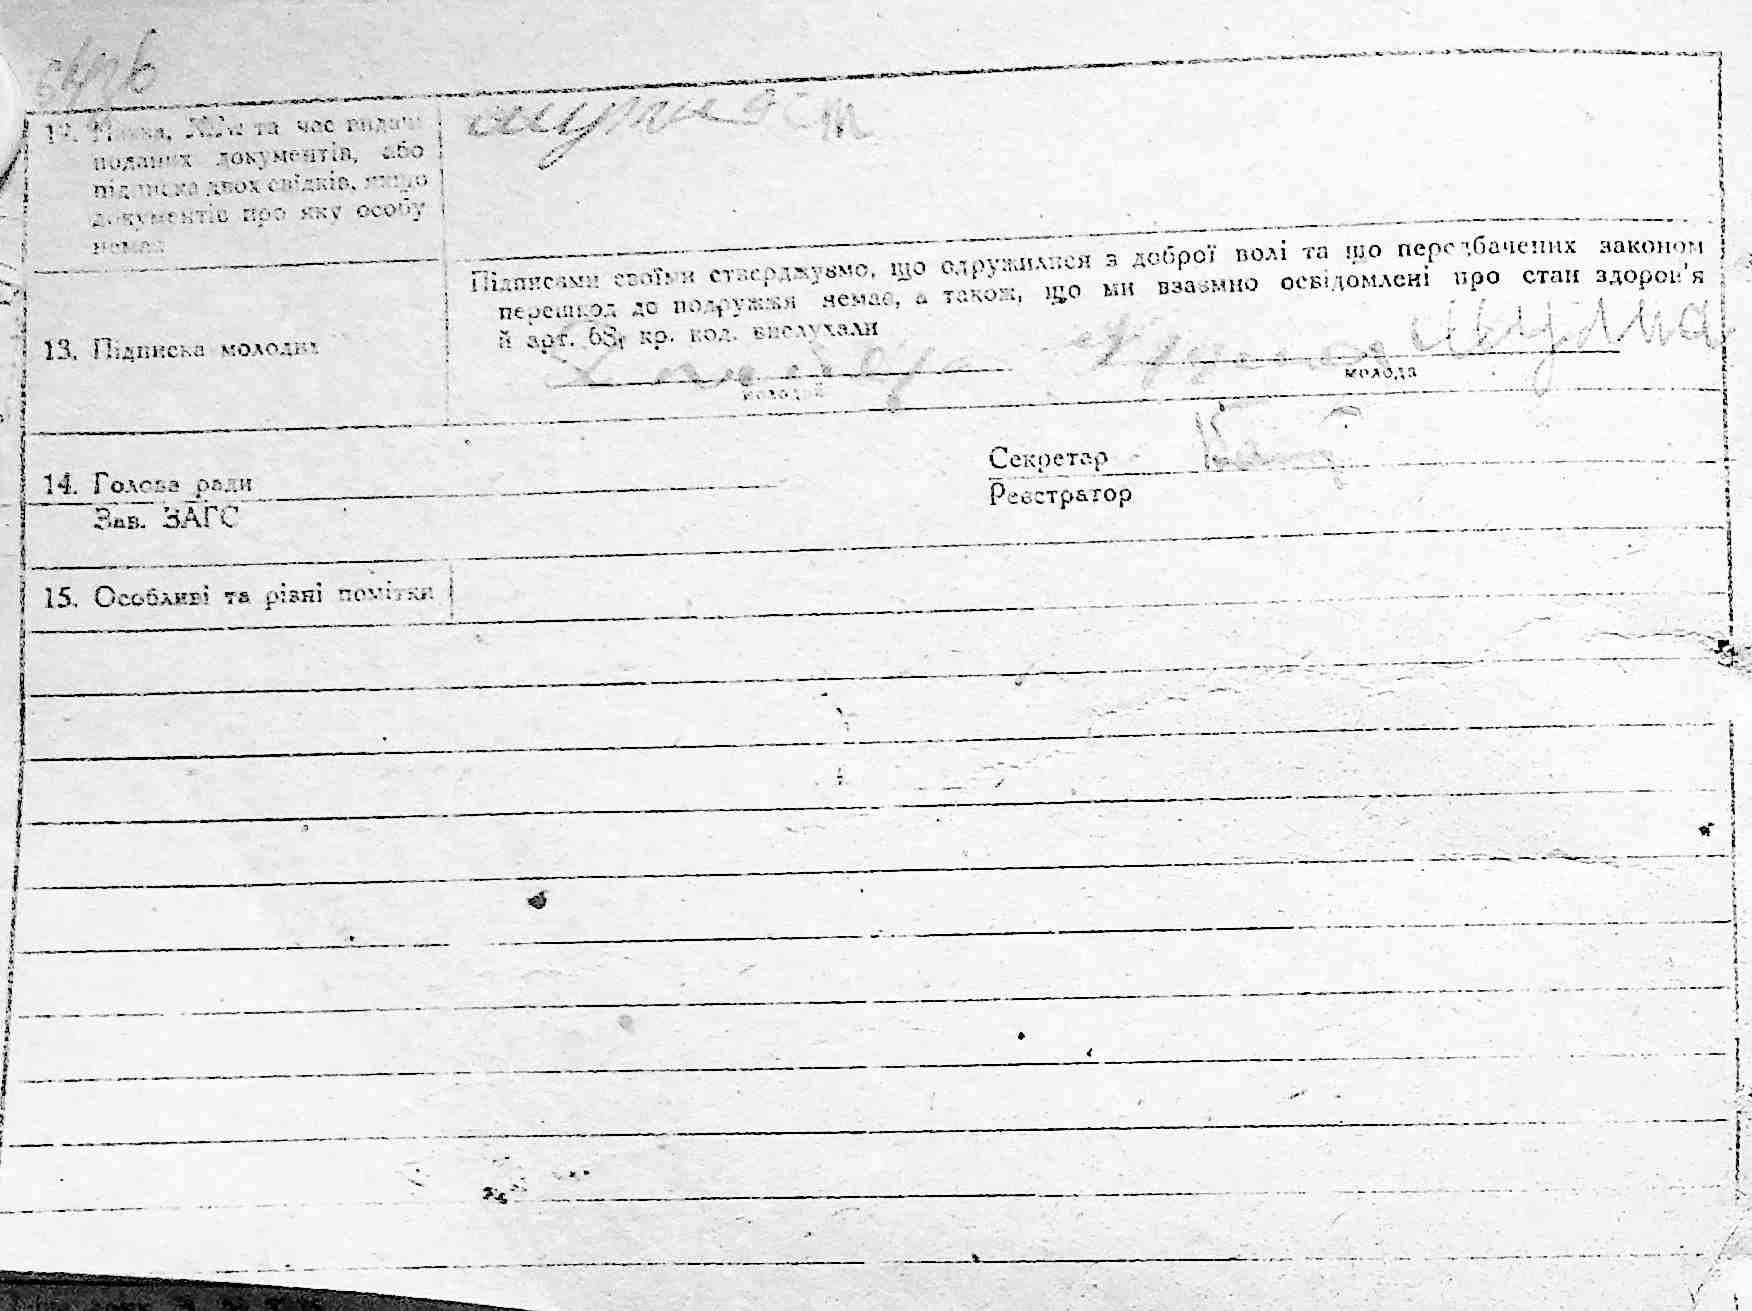 12. Назва, №№ та час видачі
поданих документів, або
підписка двох свідків, якщо
документів про яку особу
немає
13. Підписка молодих
Підписами своїми стверджуємо, що одружилися з доброї волі та що передбачених законом
перешкод до подружжя немає, а також, що ми взаємно освідомлені про стан здоров'я
й арт. 68, кр. код. вислухали
молодий
молода
14. Голова ради
Зав. ЗАГС
Секретар
Реєстратор
15. Особливі та різні помітки